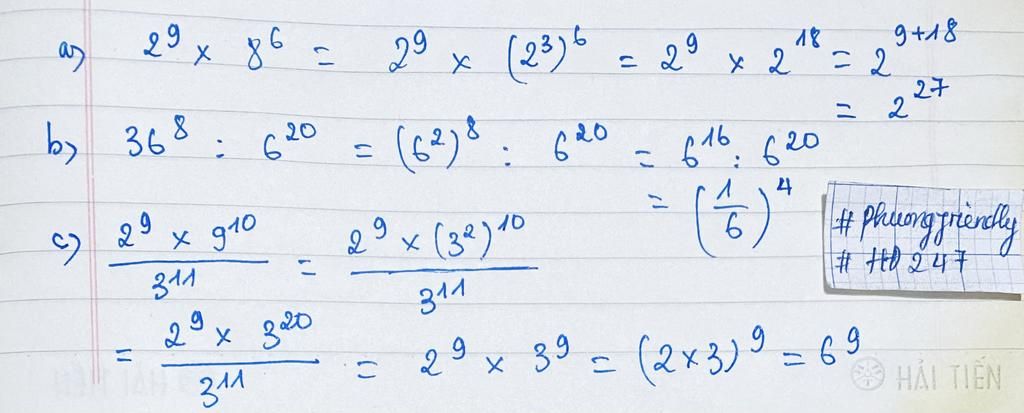 a) 2⁹ × 8⁶ = 2⁹ × (2³)⁶ = 2⁹ × 2¹⁸ = 2⁹⁺¹⁸
= 2²⁷
b) 36⁸ : 6²⁰ = (6²)⁸ : 6²⁰ = 6¹⁶ : 6²⁰
= (1/6)⁴
# phuongfriendly
# HD 247
c) (2⁹ × 9¹⁰)/3¹¹ = (2⁹ × (3²)¹⁰)/3¹¹
= (2⁹ × 3²⁰)/3¹¹ = 2⁹ × 3⁹ = (2×3)⁹ = 6⁹
HẢI TIẾN